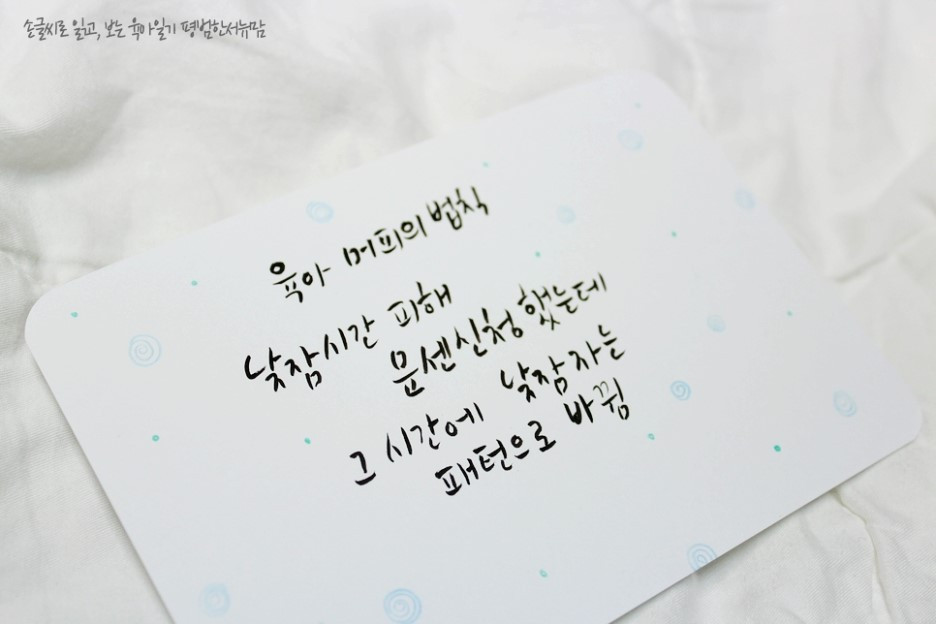 손글씨로 읽고, 보는 육아일기 평범한서뉴맘
육아 머피의 법칙
낮잠시간 피해
문센신청했는데
그 시간에 낮잠자는
패턴으로 바뀜